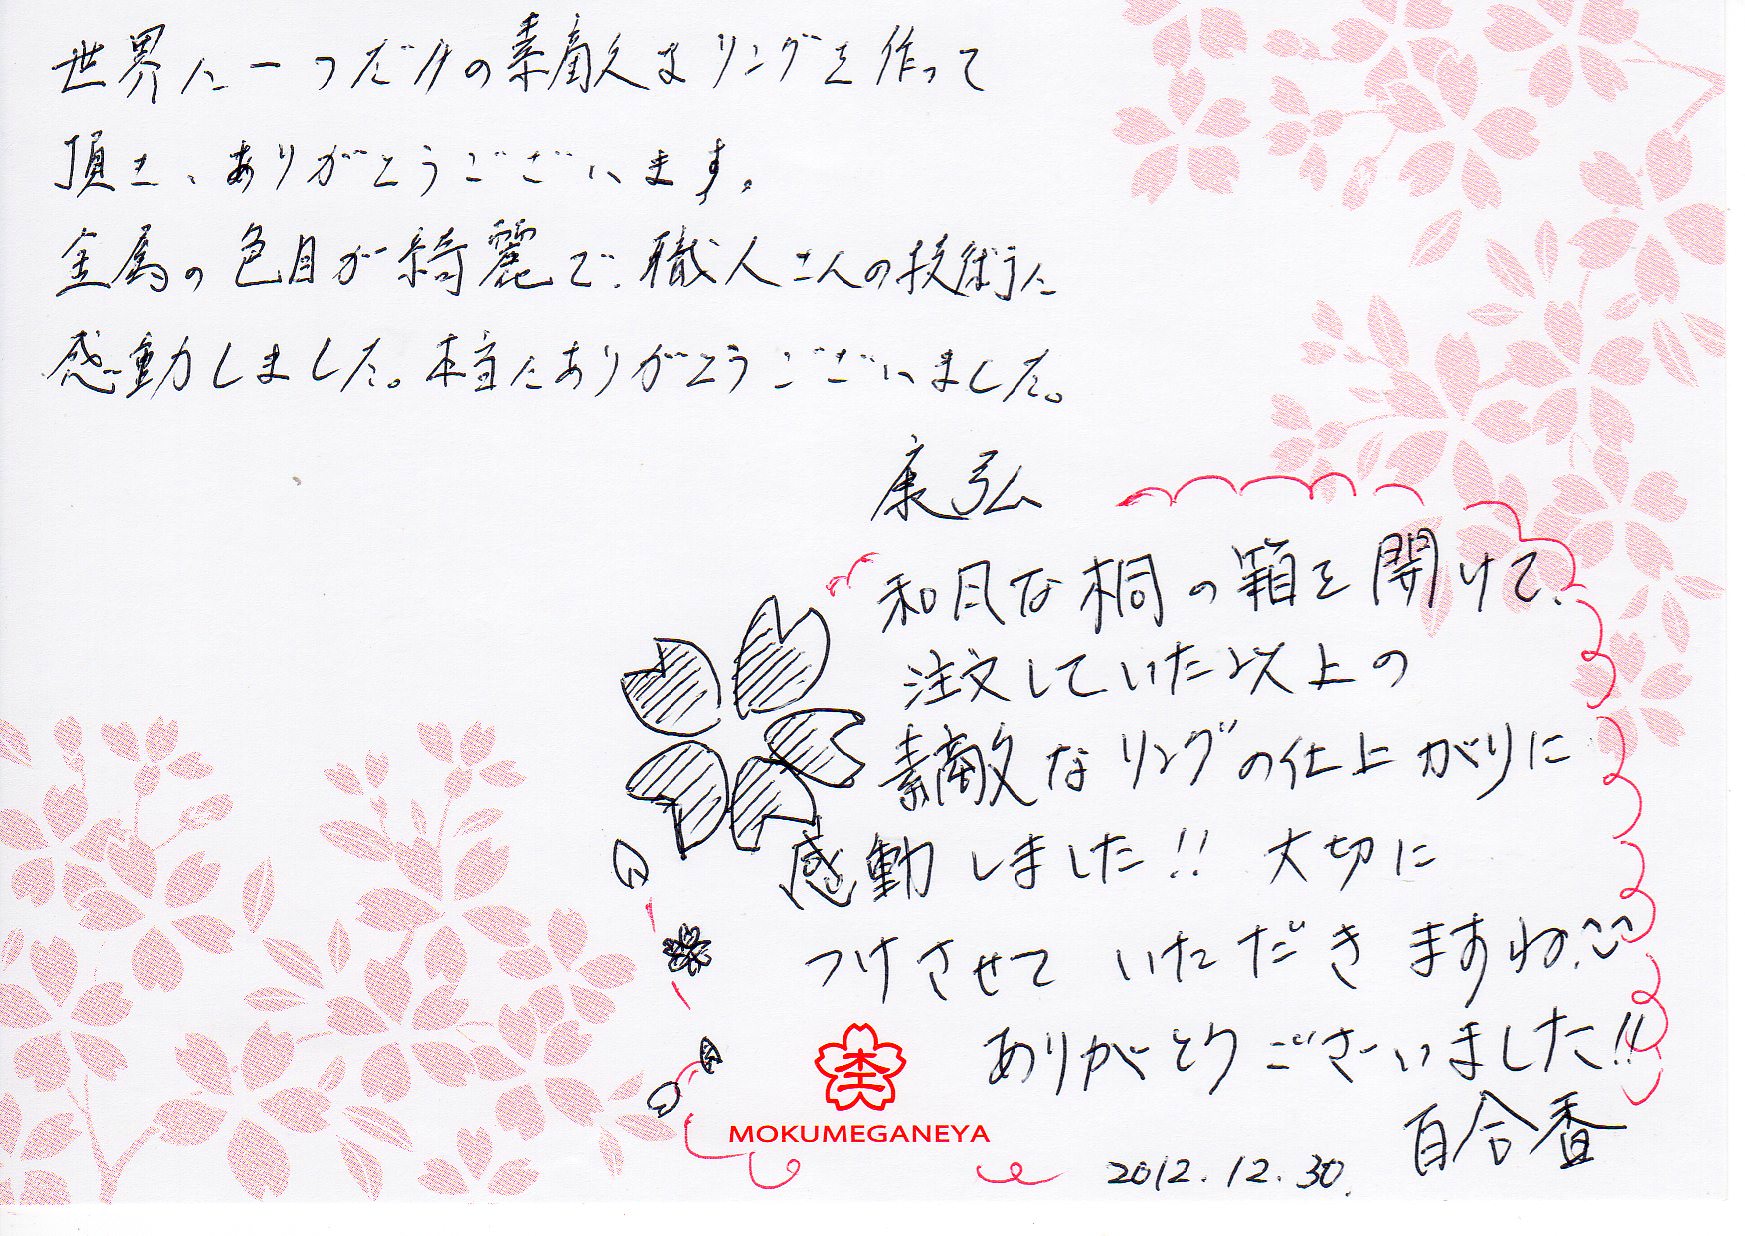 世界に一つだけの素敵なリングを作って
頂き、ありがとうございます。
金属の色目が綺麗で、職人さんの技術に
感動しました。本当にありがとうございました。
康弘
和風な桐の箱を開けて、
注文していた以上の
素敵なリングの仕上がりに
感動しました!! 大切に
つけさせていただきますね。
ありがとうございました!!
百合香
杢
MOKUMEGANEYA
2012.12.30.